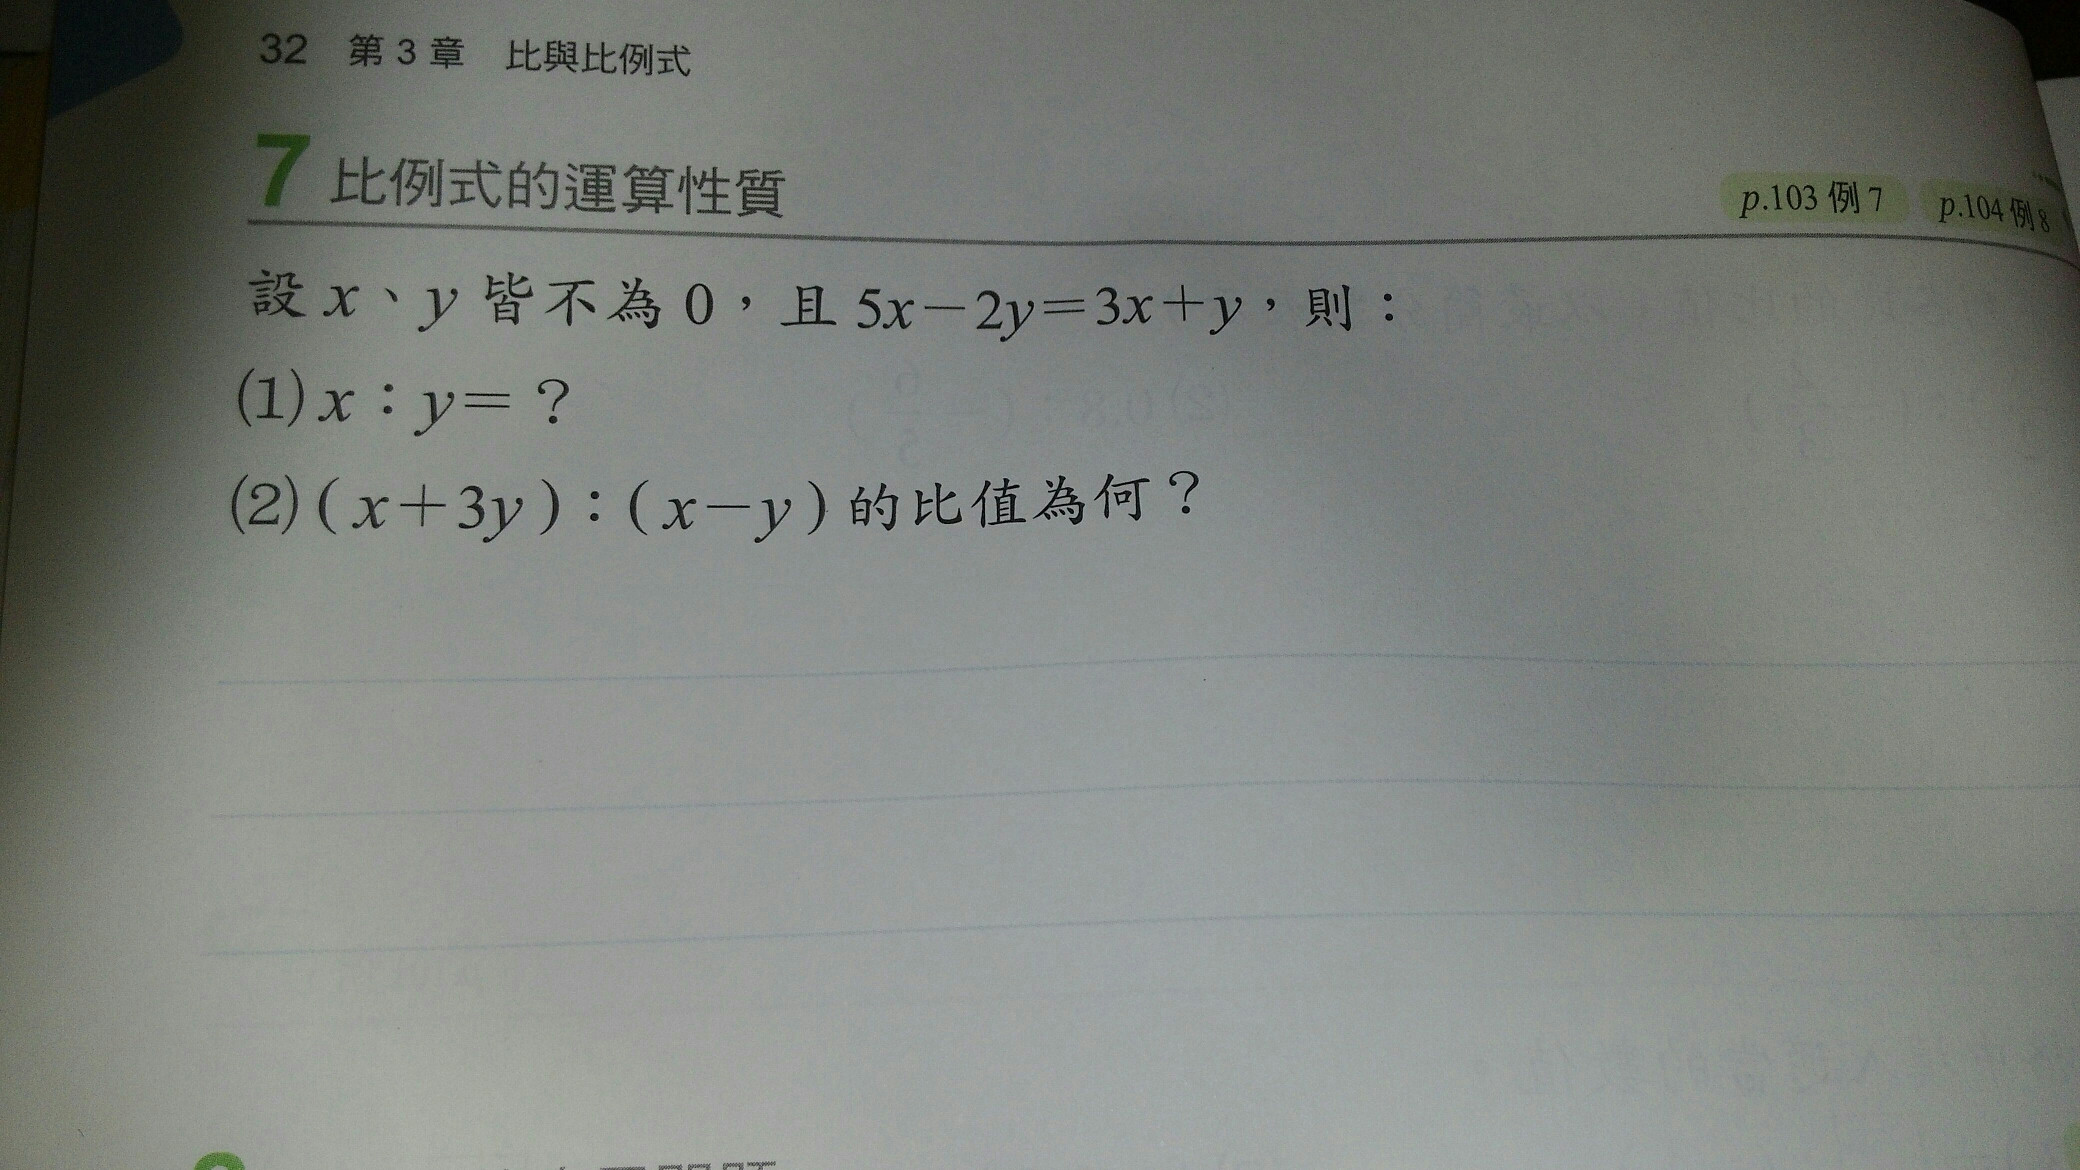 32 第3章 比與比例式
7 比例式的運算性質 p.103 例7 p.104 例8
設 x、y 皆不為 0，且 5x－2y＝3x＋y，則：
(1) x：y＝？
(2) ( x＋3y )：( x－y ) 的比值為何？